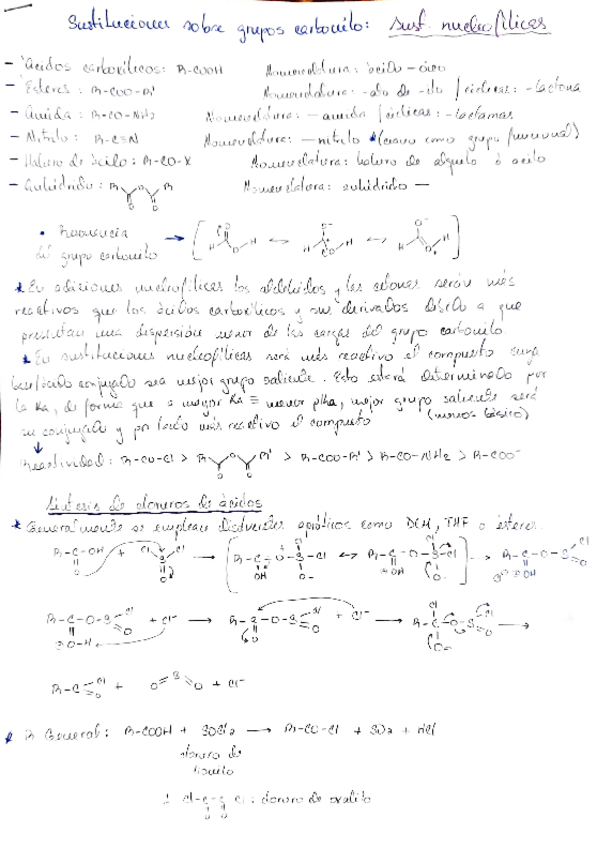 Sustituciones sobre grupos carbonilo: sust. nucleofílicas
- Ácidos carboxílicos: R-COOH Nomenclatura: ácido -oico
- Ésteres: R-COO-R' Nomenclatura: -ato de -ilo / cíclicas: -lactona
- Amida: R-CO-NH2 Nomenclatura: -amida / cíclicas: -lactamas
- Nitrilo: R-C≡N Nomenclatura: -nitrilo (ciano como grupo funcional)
- Haluro de ácido: R-CO-X Nomenclatura: haluro de alquilo ó acilo
- Anhídrido: R O R Nomenclatura: anhídrido -
O O
• Resonancia
del grupo carbonilo
* En adiciones nucleofílicas los aldehídos y las cetonas serán más
reactivos que los ácidos carboxílicos y sus derivados debido a que
presentan una dispersión menor de las cargas del grupo carbonilo.
* En sustituciones nucleofílicas será más reactivo el compuesto cuya
base/ácido conjugado sea mejor grupo saliente. Esto estará determinado por
la Ka, de forma que a mayor Ka ≡ menor pKa, mejor grupo saliente será
su conjugado y por tanto más reactivo el compuesto (menos básico)
Reactividad: R-CO-Cl > R O R' > R-COO-R' > R-CO-NH2 > R-COO⁻
Síntesis de cloruros de ácidos
* Generalmente se emplean disolventes apróticos como DCM, THF o éteres.
R-C-OH + Cl S Cl → [R-C-O-S-Cl ↔ R-C-O-S-Cl] → R-C-O-S Cl
O O OH O⁻ OH O⁻ OH O
R-C-O-S Cl + Cl⁻ → R-C-O-S Cl + Cl⁻ → R-C-O-S Cl →
O-H O O O O⁻ O
R-C Cl + O S O + Cl⁻
O
* R General: R-COOH + SOCl2 → R-CO-Cl + SO2 + HCl
cloruro de
tionilo
Cl-C-C-Cl: cloruro de oxalilo
O O